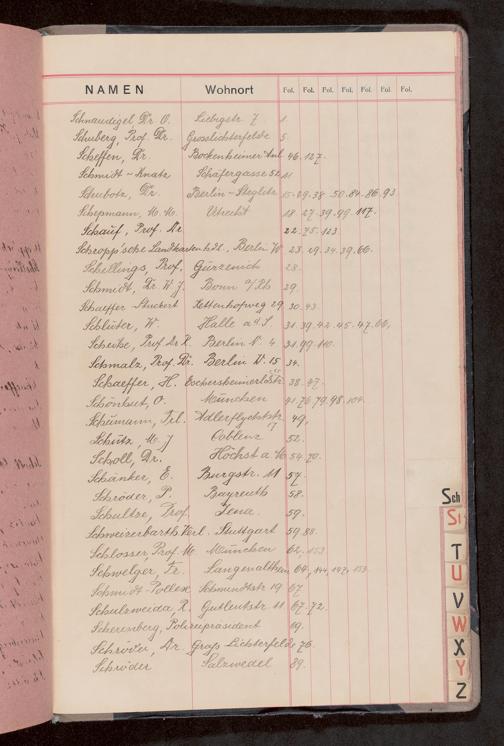 NAMEN Wohnort Fol. Fol. Fol. Fol. Fol. Fol. Fol.
Schnaudigel Dr. O. Liebigstr. 7 1
Schuberg, Prof. Dr. Grosslichterfelde 5.
Scheffen, Dr. Bockenheimer Anl. 46. 127.
Schmidt-Knatz Schäfergasse 52 11
Schubotz, Dr. Berlin-Steglitz 15. 29. 38. 50. 84. 86. 93
Schepmann, M. M. Utrecht 18. 27. 39. 49. 117.
Schauf, Prof. Dr. 22. 75. 123
Schropp'sche Landkartenhdl., Berlin W. 23. 29. 34. 39. 66.
Schellings, Prof. Gürzenich 28.
Schmidt, Dr. W. J. Bonn a/Rh 29.
Schaeffer-Stuckert Kettenhofweg 29 30. 43.
Schlüter, W. Halle a. d. S. 31. 39. 42. 45. 47. 66.
Scheibe, Prof. Dr. R. Berlin N. 4 31. 99. 110.
Schmalz, Prof. Dr. Berlin W. 15 34.
Schaeffer, H. Eschersheimerldstr. 38. 47.
Schönhut, O. München 41. 76. 79. 98. 104.
Schumann, Frl. Adlerflychtstr. 17 49.
Schütz, M. J. Coblenz 52.
Scholl, Dr. Höchst a/M 54. 70.
Schanker, E. Burgstr. 11 57.
Schröder, P. Bayreuth 58.
Schultze, Prof. Jena. 59.
Schweizerbarth Verl. Stuttgart 59. 88.
Schlosser, Prof. M. München 62. 153
Schwelger, Fr. Langenaltheim 64. 144. 147. 153
Schmidt-Polex Schwindstr. 19 67
Schulzweida, R. Gutleutstr. 11 67. 72.
Scherenberg, Polizeipräsident 69.
Schröder, Dr. Gross Lichterfelde 76.
Schröder Salzwedel 89.
Sch
St
T
U
V
W
X
Y
Z